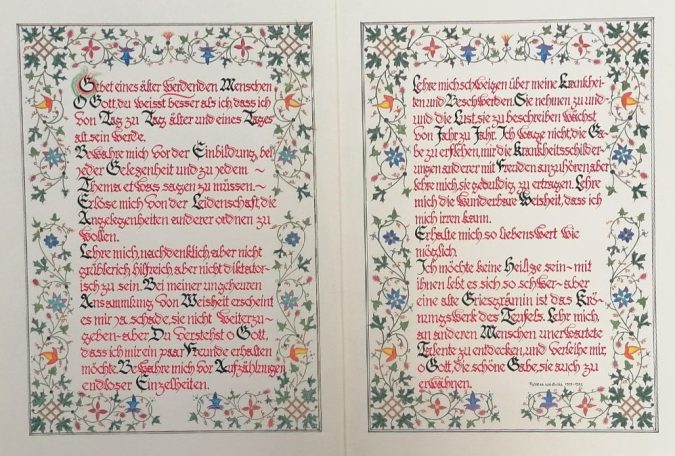 Gebet eines älter werdenden Menschen
O Gott, du weisst besser als ich, dass ich
von Tag zu Tag älter und eines Tages
alt sein werde.
Bewahre mich vor der Einbildung, bei
jeder Gelegenheit und zu jedem ~
Thema etwas sagen zu müssen. ~
Erlöse mich von der Leidenschaft, die
Angelegenheiten anderer ordnen zu
wollen.
Lehre mich, nachdenklich, aber nicht
grüblerich, hilfreich, aber nicht diktator-
isch zu sein. Bei meiner ungeheuren
Ansammlung von Weisheit erscheint
es mir ja schade, sie nicht weiterzu-
gehen - aber Du verstehst o Gott,
dass ich mir ein paar Freunde erhalten
möchte. Bewahre mich vor Aufzählungen
endloser Einzelheiten.
Lehre mich schweigen über meine Krankhei-
ten und Beschwerden. Sie nehmen zu und -
und die Lust, sie zu beschreiben wächst
von Jahr zu Jahr. Ich wage nicht, die Ga-
be zu erflehen, mir die Krankheitsschilder-
ungen anderer mit Freuden anzuhören, aber
lehre mich, sie geduldig zu ertragen. Lehre
mich die wunderbare Weisheit, dass ich
mich irren kann.
Erhalte mich so liebenswert wie
möglich.
Ich möchte keine Heilige sein - mit
ihnen lebt es sich so schwer - aber
eine alte Griesgrämin ist das Krö-
nungswerk des Teufels. Lehr mich,
an anderen Menschen unerwartete
Talente zu entdecken, und verleihe mir,
o Gott, die schöne Gabe, sie auch zu
erwähnen.